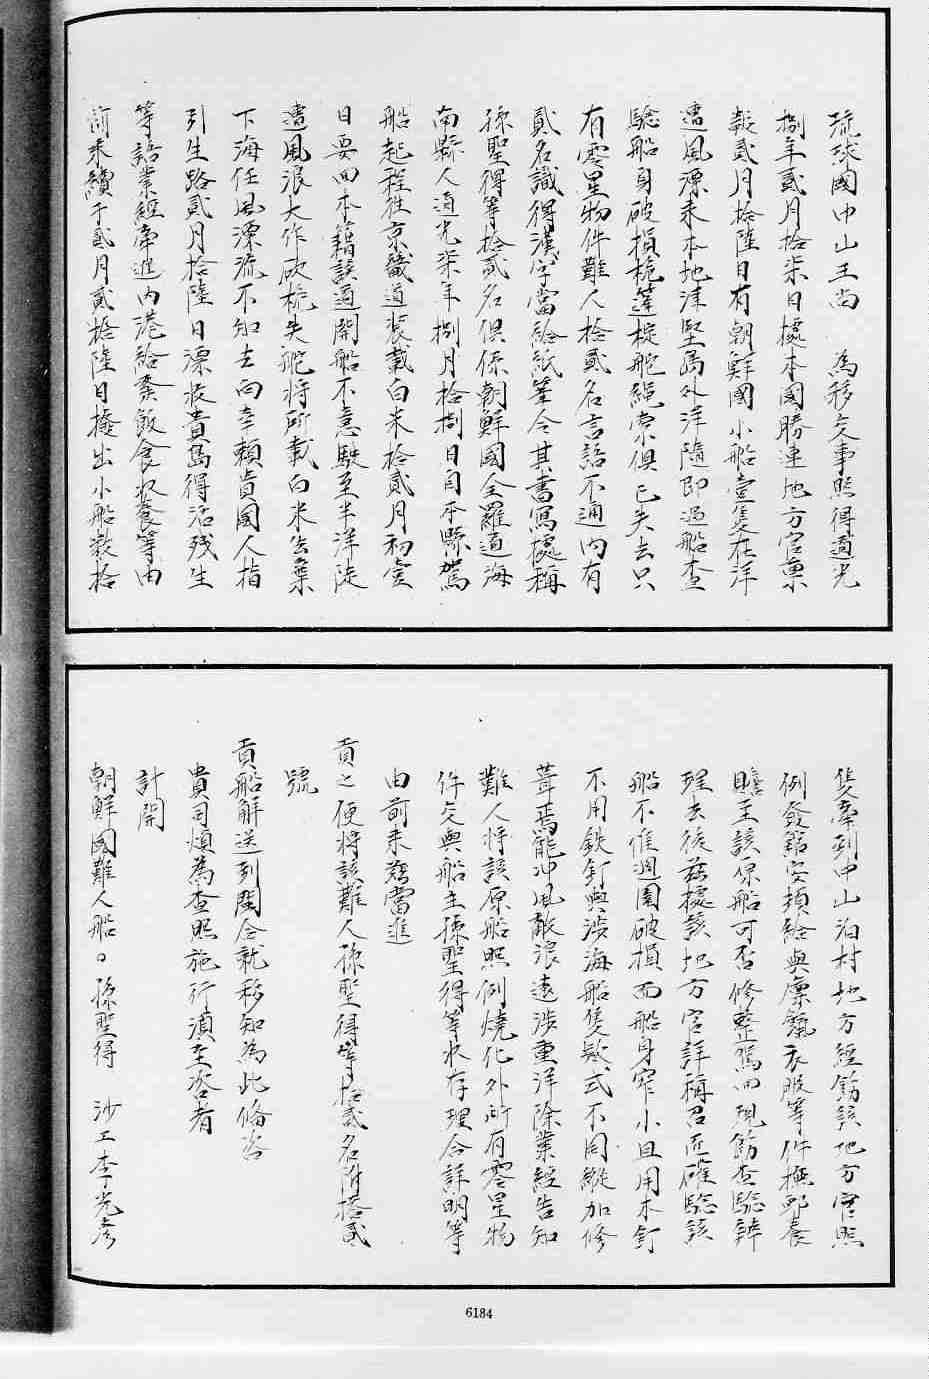 琉球國中山王尚　為移交事照得道光
捌年貳月拾柒日據本國勝連地方官稟
報貳月拾陸日有朝鮮國小船壹隻在洋
遭風漂來本地津堅島外洋隨即過船查
驗船身破損桅篷椗舵繩索俱已失去只
有零星物件難人拾貳名言語不通內有
貳名識得漢字當給紙筆令其書寫據稱
孫聖得等拾貳名俱係朝鮮國全羅道海
南縣人道光柒年捌月拾捌日自本縣駕
船起程往京畿道裝載白米拾貳月初壹
日要回本籍該道開船不意駛至半洋陡
遭風浪大作砍桅失舵將所載白米丟棄
下海任風漂流不知去向幸賴貴國人指
引生路貳月拾陸日漂收貴島得活殘生
等語業經牽進內港給粟飯食収養等由
前來續于貳月貳拾陸日撥出小船數拾
隻牽到中山泊村地方經飭該地方官照
例發館安頓給與廩餼衣服等件撫卹養
贍至該原船可否修整駕回現飭查驗辨
理去後茲據該地方官詳稱召匠確驗該
船不惟週圍破損而船身窄小且用木釘
不用鉄釘與涉海船隻欵式不同縱加修
葺焉能冲風敵浪遠涉重洋除業經告知
難人將該原船照例燒化外所有零星物
件交與船主孫聖得等收存理合詳明等
由前來茲當進
貢之便將該難人孫聖得等拾貳名附搭貳
號
貢船解送到閩合就移知為此備咨
貴司煩為查照施行湏至咨者
計開
朝鮮國難人船口孫聖得　沙工李光彥
6184